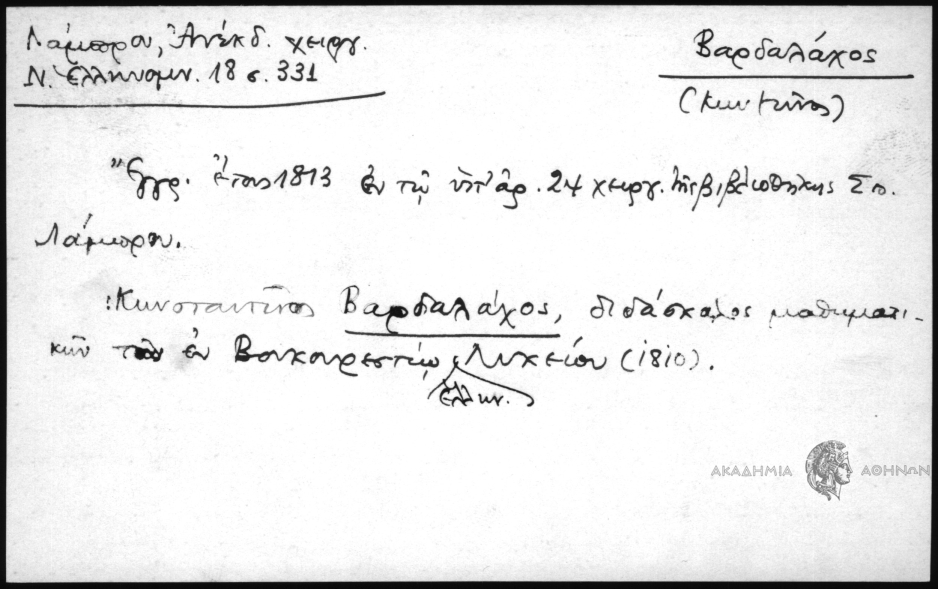 Λάμπρου, Ἀνέκδ. χειργ.
Ν. Ἑλληνομν. 18 σ. 331
Βαρδαλάχος
(Κων/τῖνος)
Ἔγγρ. ἔτους 1813 ἐν τῷ ὑπ' ἀρ. 24 χειργ. τῆς βιβλιοθήκης Σπ.
Λάμπρου.
:Κωνσταντῖνος Βαρδαλάχος, διδάσκαλος μαθηματι-
κῶν τοῦ ἐν Βουκουρεστίῳ Λυκείου (1810).
ἑλλην.
ΑΚΑΔΗΜΙΑ ΑΘΗΝΩΝ